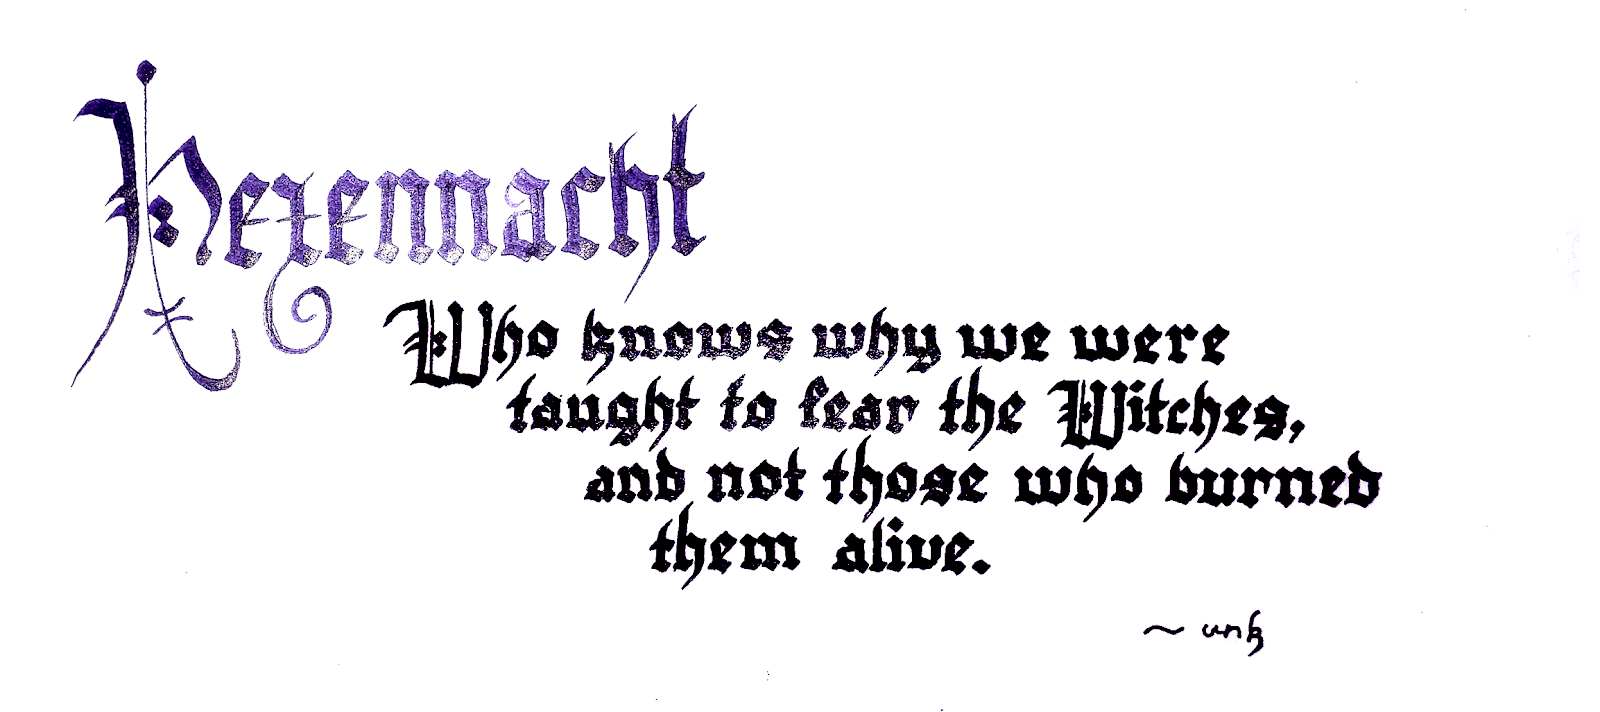 Hexennacht
Who knows why we were
taught to fear the Witches,
and not those who burned
them alive.
~ unk